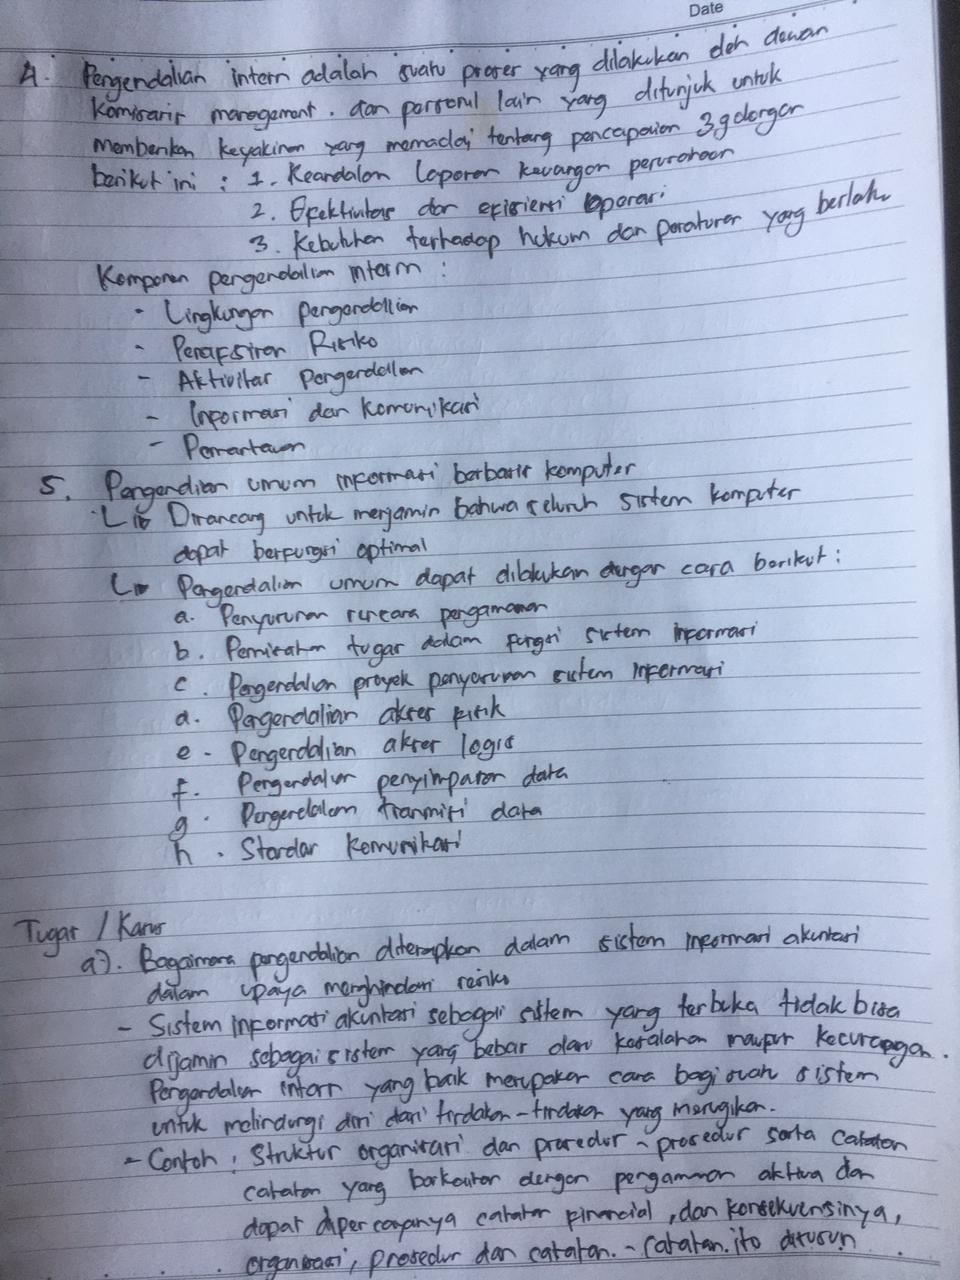 Date
4. Pengendalian intern adalah suatu proses yang dilakukan oleh dewan
Komisaris management, dan personil lain yang ditunjuk untuk
memberikan keyakinan yang memadai tentang pencapaian 3 golongan
berikut ini : 1. Keandalan laporan keuangan perusahaan
2. Efektivitas dan efisiensi operasi
3. Kebutuhan terhadap hukum dan peraturan yang berlaku
Komponen pengendalian intern :
- Lingkungan pengendalian
- Penafsiran Risiko
- Aktivitas Pengendalian
- Informasi dan Komunikasi
- Pemantauan
5. Pengendian umum informasi berbasis komputer
Dirancang untuk menjamin bahwa seluruh sistem komputer
dapat berfungsi optimal
Pengendalian umum dapat dilakukan dengan cara berikut :
a. Penyusunan rencana pengamanan
b. Pemisahan tugas dalam fungsi sistem informasi
c. Pengendalian proyek penyusunan sistem informasi
d. Pengendalian akses fisik
e - Pengendalian akses logis
f. Pengendalian penyimpanan data
g. Pengendalian tranmisi data
h. Standar Komunikasi
Tugas / Kasus
a). Bagaimana pengendalian diterapkan dalam sistem informasi akuntasi
dalam upaya menghindari resiko
- Sistem informasi akuntasi sebagai sistem yang terbuka tidak bisa
dijamin sebagai sistem yang bebas dari kesalahan maupun kecurangan.
Pengendalian intern yang baik merupakan cara bagi suatu sistem
untuk melindungi diri dari tindakan-tindakan yang merugikan.
- Contoh : Struktur organisasi dan prosedur - prosedur serta catatan
catatan yang berkaitan dengan pengamanan aktiva dan
dapat dipercayanya catatan financial, dan konsekuensinya,
organisasi, prosedur dan catatan - catatan ito disusun